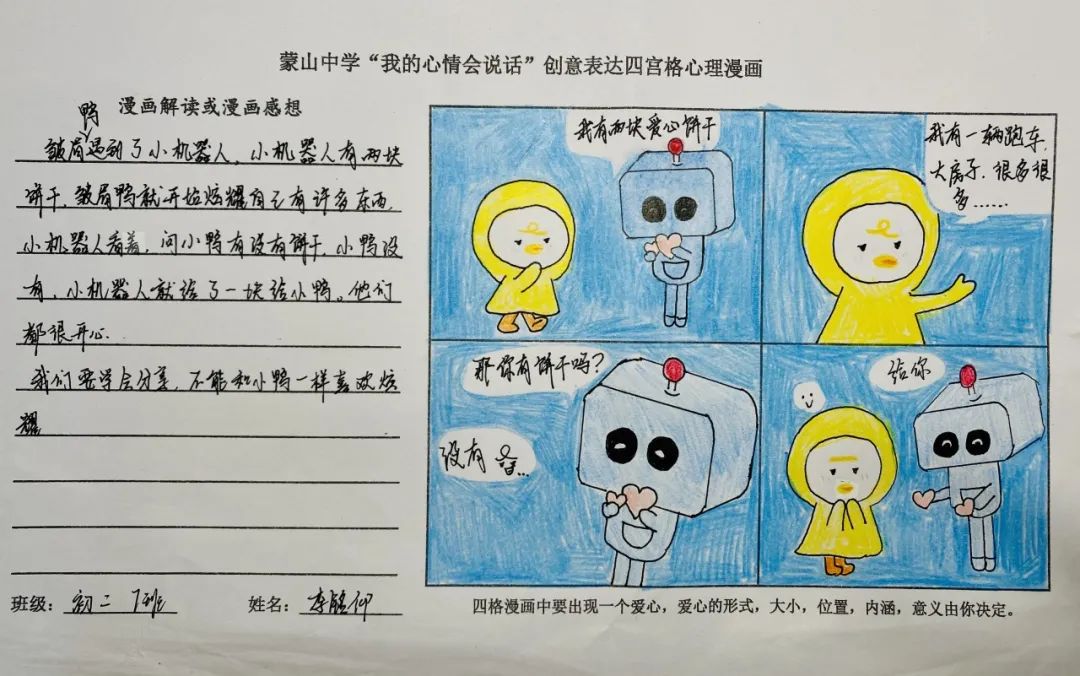 蒙山中学“我的心情会说话”创意表达四宫格心理漫画
漫画解读或漫画感想
鸭
皱眉遇到了小机器人，小机器人有两块
饼干，皱眉鸭就开始炫耀自己有许多东西，
小机器人看着，问小鸭有没有饼干，小鸭没
有，小机器人就给了一块给小鸭。他们
都很开心.
我们要学会分享，不能和小鸭一样喜欢炫
耀
班级：初二7班
姓名：李 仰
我有两块爱心饼干
我有一辆跑车，
大房子，很多很
多……
那你有饼干吗？
没有
给你
四格漫画中要出现一个爱心，爱心的形式，大小，位置，内涵，意义由你决定。